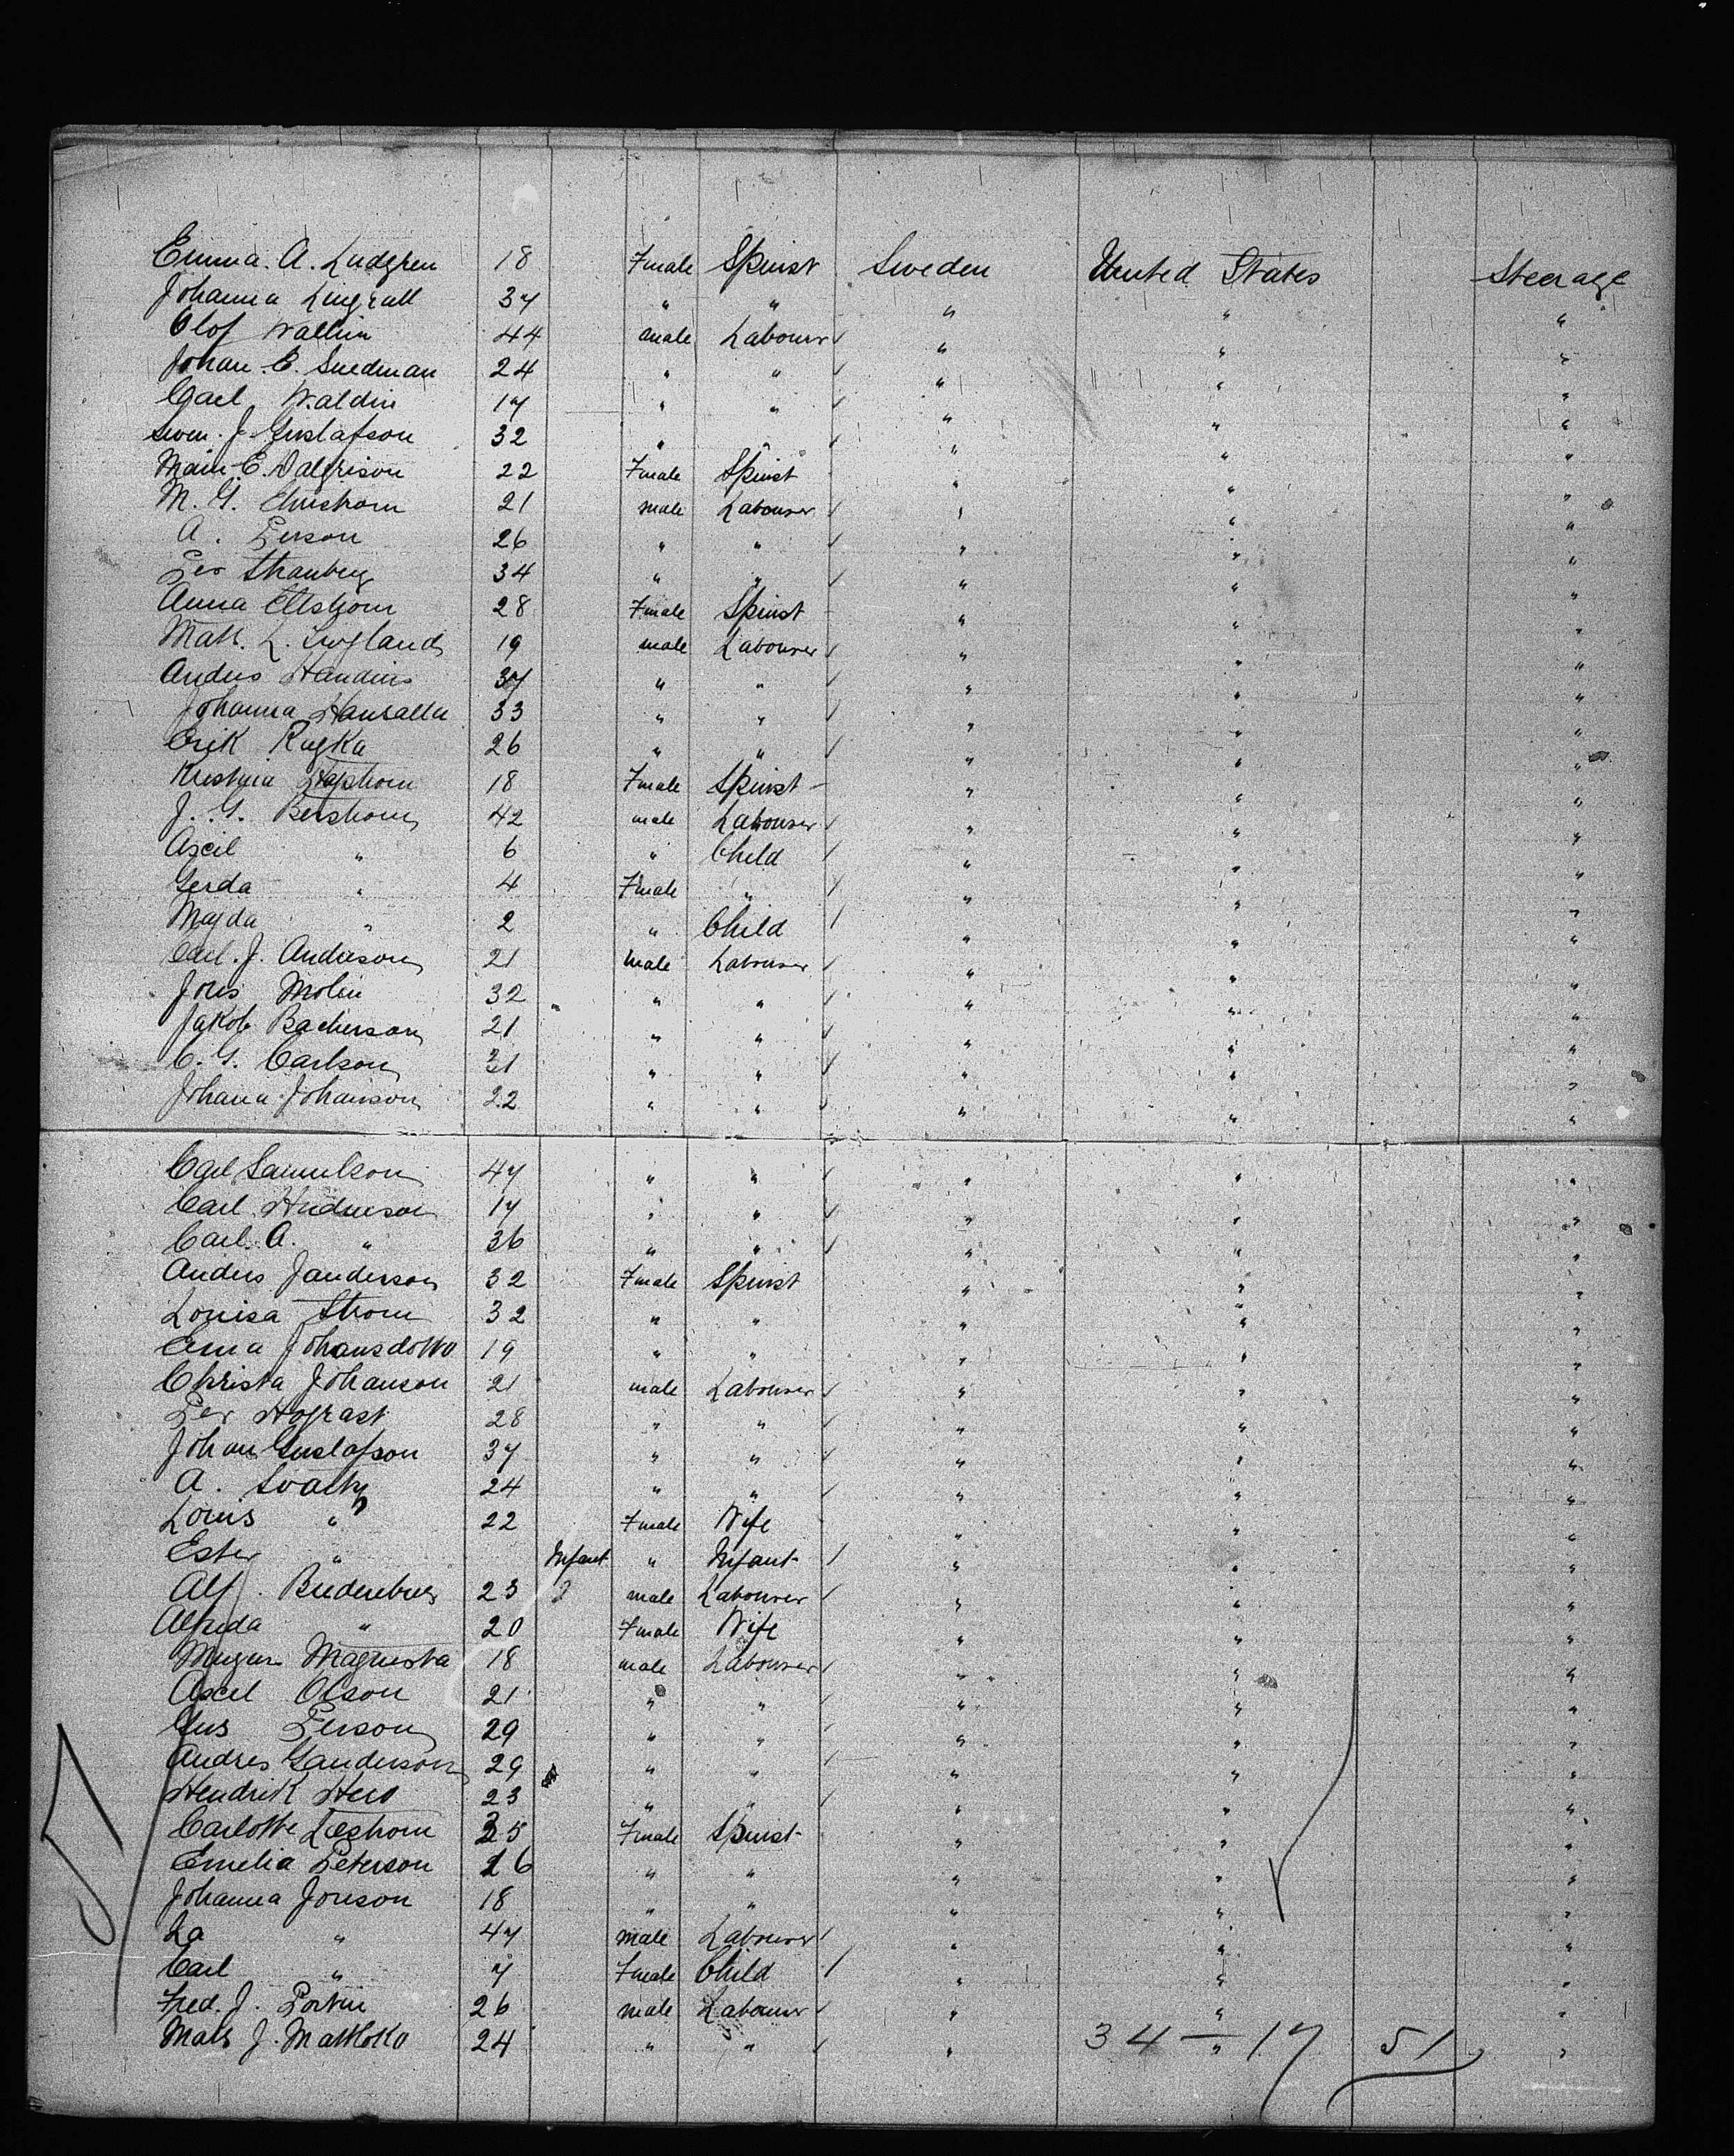 Emma. A. Ludgren 18 Female Spinst Sweden United States Steerage
Johanna Lingrall 37 " " " " "
Olof Wallin 44 male Labourer " " "
Johan. C. Suedman 24 " " " " "
Carl Waldin 17 " " " " "
Swen. J. Gustafson 32 " " " " "
E. Dalgrison 22 Female Spinst " " "
M. G. 21 male Labourer " " "
A. Person 26 " " " " "
Per Stranberg 34 " " " " "
Anna Ellstrom 28 Female Spinst " " "
Matt. L. 19 male Labourer " " "
Andus Standins 37 " " " " "
Johanna 33 " " " " "
Erik Rugka 26 " " " " "
18 Female Spinst " " "
J. G. Berstrom 42 male Labourer " " "
Axcil " 6 " Child " " "
Gerda " 4 Female " " " "
Magda " 2 " Child " " "
Carl. J. Anderson 21 male Labourer " " "
Jons Molin 32 " " " " "
Jakob Backerson 21 " " " " "
C. G. Carlson 21 " " " " "
Johana Johanson 22 " " " " "
Carl Samulson 47 " " " " "
Carl 17 " " " " "
Carl. A. " 36 " " " " "
Andus Janderson 32 Female Spinst " " "
Louisa Strom 32 " " " " "
Johansdotto 19 " " " " "
Christa Johanson 21 male Labourer " " "
Per Hograst 28 " " " " "
Johan Guslafson 37 " " " " "
A. 24 " " " " "
Louis " 22 Female Wife " " "
Ester " Infant " Infant " " "
Alf. 23 male Labourer " " "
Alfrida " 20 Female Wife " " "
Magnusta 18 male Labourer " " "
Axcel Olson 21 " " " " "
Gus Person 29 " " " " "
Andres Ganderson 29 " " " " "
Hendrik Hero 23 " " " " "
Carlotte 25 Female Spinst " " "
Emelia Peterson 26 " " " " "
Johanna Jonson 18 " " " " "
La " 47 male Labourer " " "
Carl " 7 Female Child " " "
Fred. J. 26 male Labourer " " "
Mats J. Mattoko 24 " " " " "
34 — 17 51